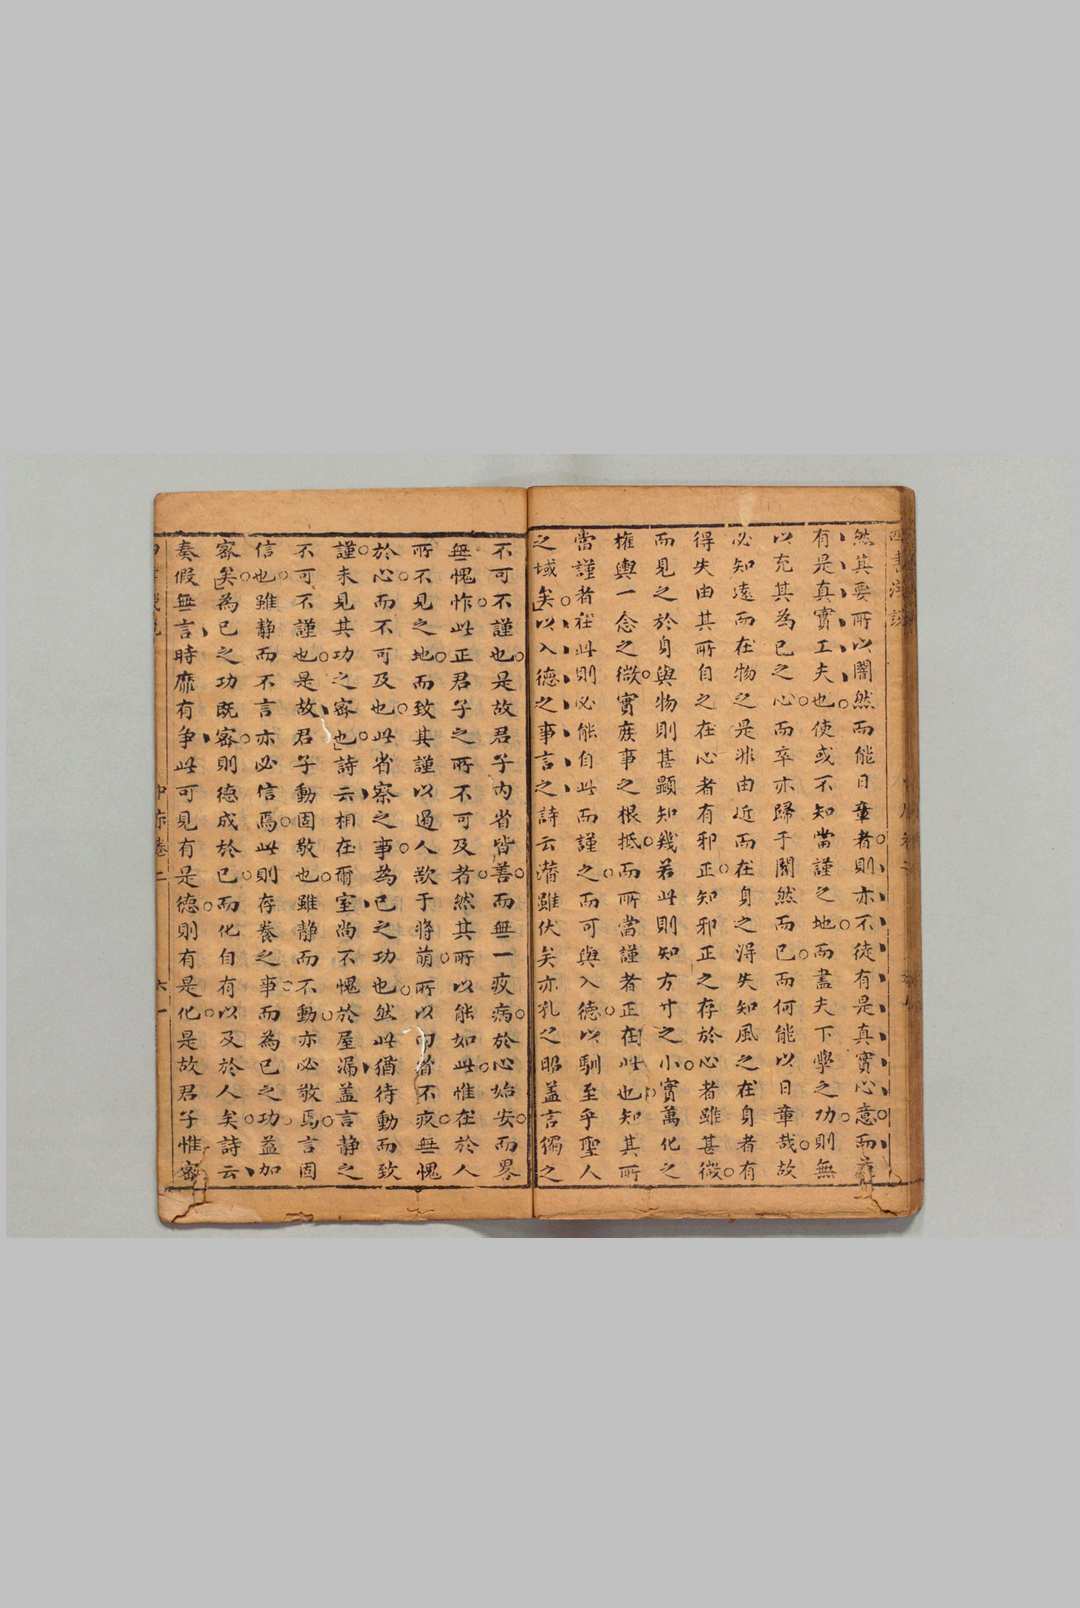 然其要所以闇然而能日章者則亦不徒有是真實心意而
有是真實工夫也使或不知當謹之地而盡夫下學之功則無
以充其為已之心而卒亦歸于闇然而已而何能以日章哉故
必知遠而在物之是非由近而在身之得失知風之在身者有
得失由其所自之在心者有邪正知邪正之存於心者雖甚微
而見之於身與物則甚顯知幾若此則知方寸之小實萬化之
權輿一念之微實庶事之根抵而所當謹者正在此也知其所
當謹者在此則必能自此而謹之而可與入德以馴至乎聖人
之域矣以入德之事言之詩云潛雖伏矣亦孔之昭蓋言獨之
不可不謹也是故君子內省皆善而無一疚病於心始安而畧
無愧怍此正君子之所不可及者然其所以能如此惟在於人
所不見之地而致其謹以過人欲于將萌所以內省不疚無愧
於心而不可及也此省察之事為已之功也然此猶待動而致
謹未見其功之密也詩云相在爾室尚不愧於屋漏蓋言靜之
不可不謹也是故君子動固敬也雖靜而不動亦必敬焉言固
信也雖靜而不言亦必信焉此則存養之事而為已之功益加
密矣為已之功既密則德成於已而化自有以及於人矣詩云
奏假無言時靡有爭此可見有是德則有是化是故君子惟密